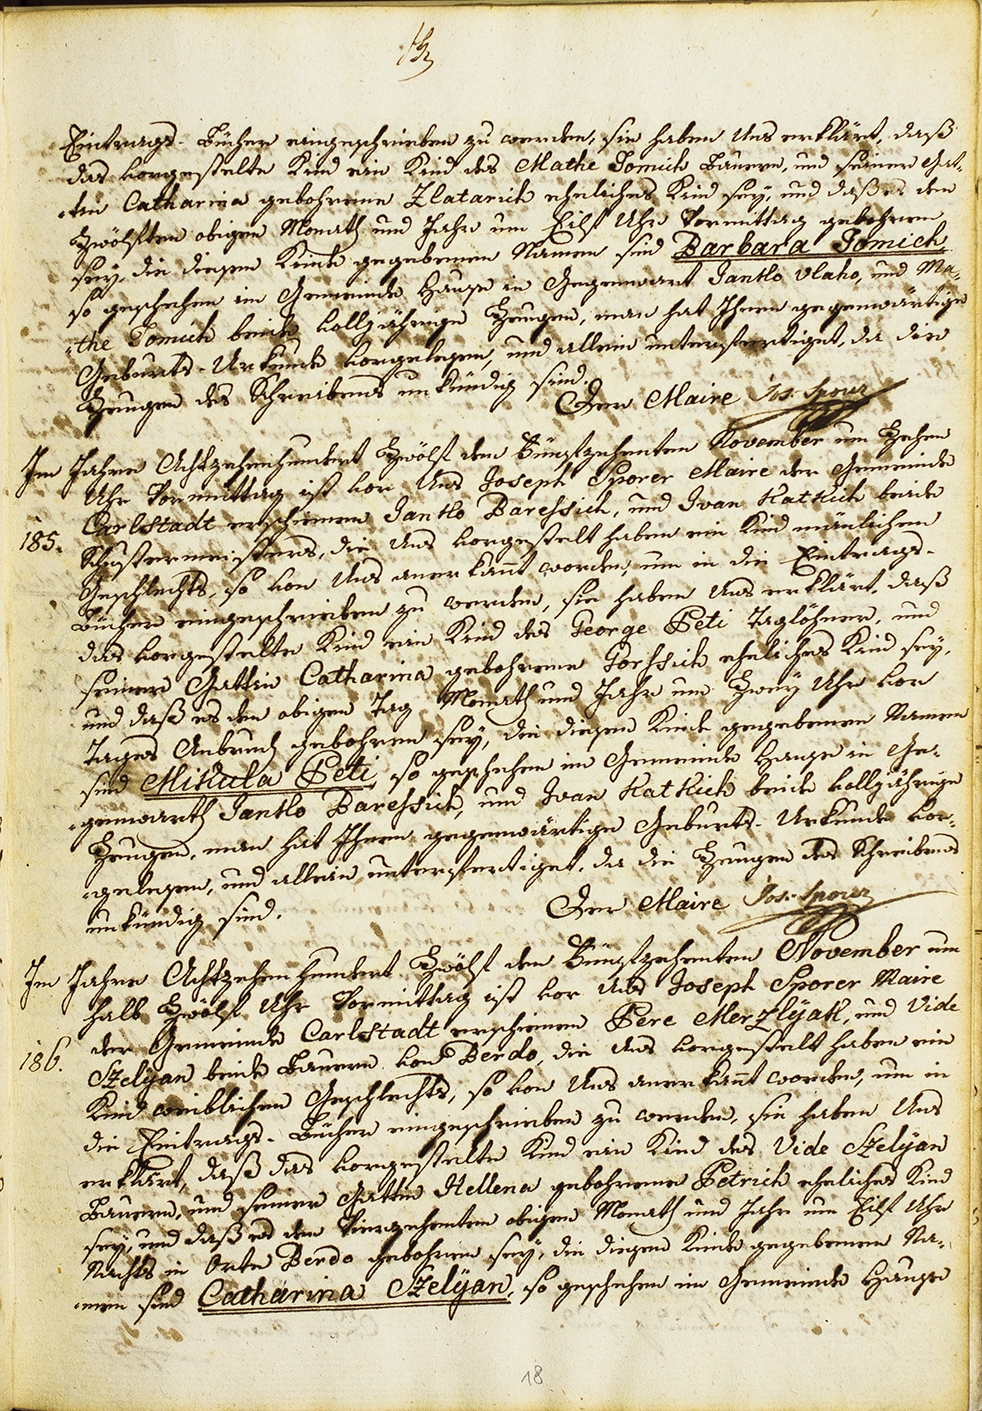 Eintrags-Bücher eingeschrieben zu werden, sie haben Uns erklärt, daß
das vorgestelte Kind ein Kind des Mathe Tomich Bauern, und seiner Gat-
-tin Catharina gebohrene Zlatarich eheliches Kind sey, und daß es den
Zwölften obigen Monath und Jahr um Eilf Uhr Vormittag gebohren
sey, die diesem Kinde gegebenen Namen sind Barbara Tomich,
so geschehen im Gemeinde Hause in Gegenwart Jankko Vlaho, und Ma-
-the Tomich beide volljährige Zeugen, man hat Ihnen gegenwärtige
Geburts-Urkunde vorgelesen, und allein unterfertiget, da die
Zeugen des Schreibens unkündig sind.
Der Maire Jos: Sporer
Im Jahre Achtzehenhundert Zwölf den Fünfzehenten November um Zehen
Uhr Vormittag ist vor Uns Joseph Sporer Maire der Gemeinde
Carlstadt erschienen Jankko Baressich, und Ivan Katkich beide
185.
Schustermeisters, die Uns vorgestelt haben ein Kind mänlichen
Geschlechts, so von Uns anerkannt worden, um in die Eintrags-
Bücher eingeschrieben zu werden, sie haben Uns erklärt, daß
das vorgestelte Kind ein Kind des George Peti Taglöhner, und
seiner Gattin Catharina gebohrene Porssich eheliches Kind sey,
und daß es den obigen Tag Monath und Jahr um Zwey Uhr vor
Tages Anbruch gebohren sey, die diesem Kinde gegebenen Namen
sind Mikula Peti, so geschehen im Gemeinde Hause in Ge-
-genwarth Jankko Baressich, und Ivan Katkich beide volljährige
Zeugen, man hat Ihnen gegenwärtige Geburts-Urkunde vor-
-gelesen, und allein unterfertiget, da die Zeugen des Schreibens
unkündig sind.
Der Maire Jos: Sporer
Im Jahre Achtzehenhundert Zwölf den Fünfzehenten November um
halb Zwölf Uhr Vormittag ist vor Uns Joseph Sporer Maire
der Gemeinde Carlstadt erschienen Pere Merzlyak, und Vide
186.
Szelyan beide Bauern von Berdo, die Uns vorgestelt haben ein
Kind weiblichen Geschlechts, so von Uns anerkannt worden, um in
die Eintrags-Bücher eingeschrieben zu werden, sie haben Uns
erklärt, daß das vorgestelte Kind ein Kind des Vide Szelyan
Bauern, und seiner Gattin Hellena gebohrene Petrich eheliches Kind
sey, und daß es den Vierzehenten obigen Monath und Jahr um Eilf Uhr
Nachts in Orte Berdo gebohren sey, die diesem Kinde gegebenen Na-
-men sind Catharina Szelyan, so geschehen im Gemeinde Hause
18